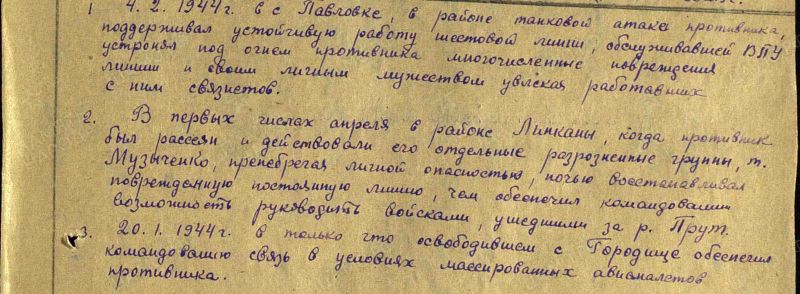 1 4. 2. 1944г. в с Павловке, в районе танковой атаки противника,
поддерживал устойчивую работу шестовой линии, обслуживавшей ВПУ
устронял под огнем противника многочисленные повреждения
линии и своим личным мужеством увлекая работавших
с ним связистов.
2. В первых числах апреля в районе Линканы, когда противник
был рассеян и действовали его отдельные разрозненные группы, т.
Музыченко, пренебрегая личной опасностью, ночью восстанавливал
поврежденную постоянную линию, чем обеспечил командованию
возможность руководить войсками, ушедшими за р. Прут.
3. 20. 1. 1944г. в только что освободившем с Городище обеспечил
командованию связь в условиях массированных авианалетов
противника.